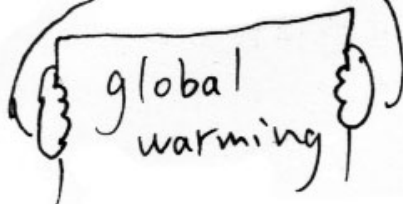 global
warming